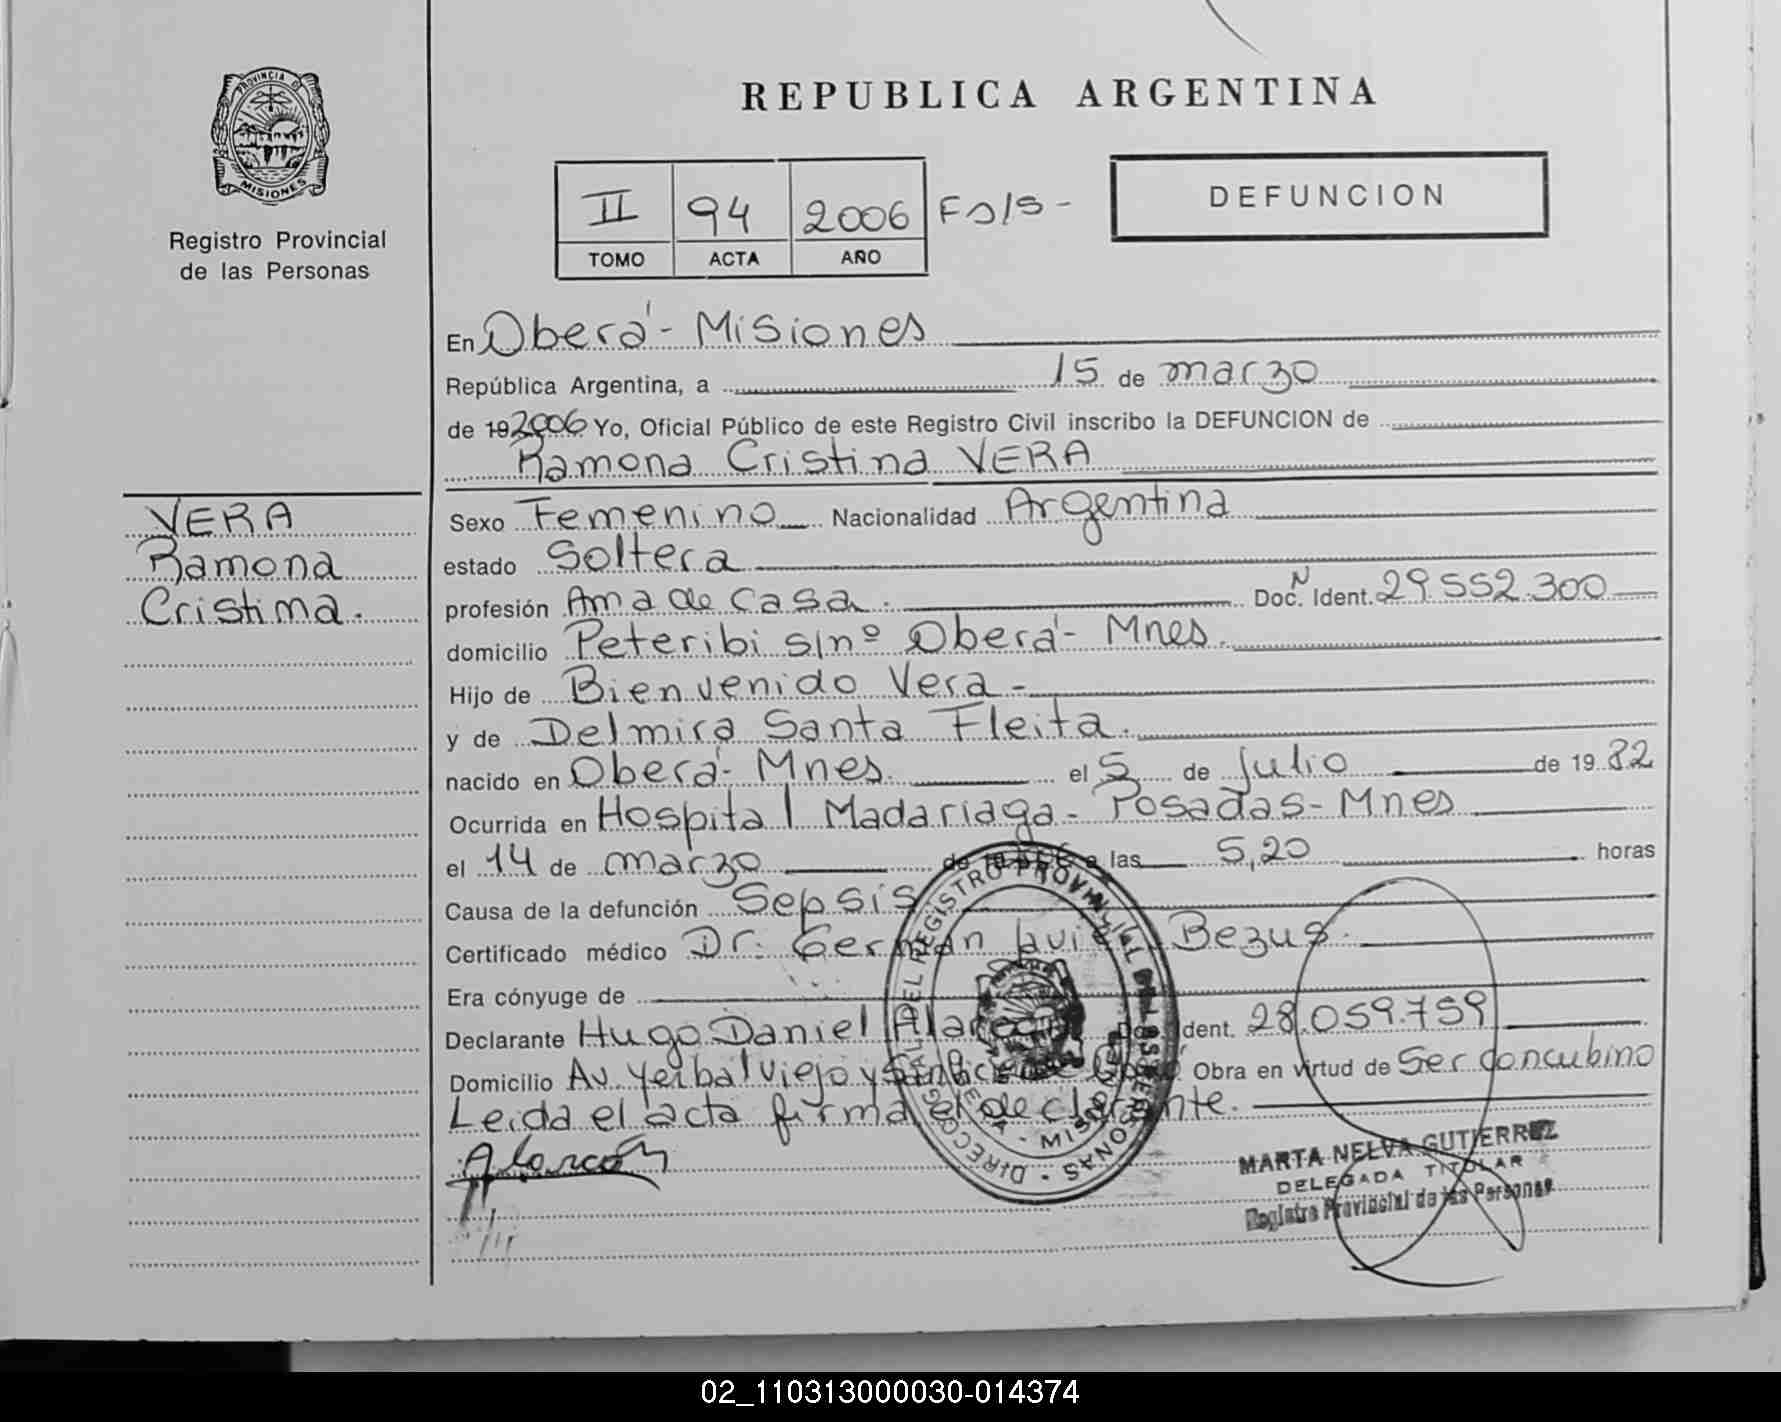 PROVINCIA DE
MISIONES
Registro Provincial
de las Personas
REPUBLICA ARGENTINA
II 94 2006 Fo/s-
TOMO ACTA AÑO
DEFUNCION
En Oberá - Misiones
República Argentina, a 15 de marzo
de 19 2006 Yo, Oficial Público de este Registro Civil inscribo la DEFUNCION de
Ramona Cristina VERA
VERA
Ramona
Cristina.
Sexo Femenino Nacionalidad Argentina
estado Soltera
profesión Ama de casa. Doc. N Ident. 29.552.300
domicilio Peteribi s/nº Oberá - Mnes.
Hijo de Bienvenido Vera -
y de Delmira Santa Fleita.
nacido en Oberá - Mnes. el 5 de Julio de 19 82
Ocurrida en Hospital Madariaga - Posadas - Mnes
el 14 de marzo de 19 a las 5,20 horas
Causa de la defunción Sepsis
Certificado médico Dr. German Javier Bezus.
Era cónyuge de
Declarante Hugo Daniel Alarcón Doc. Ident. 28.059.759
Domicilio Av. Yerbal Viejo y Obra en virtud de Ser concubino
Leida el acta firma el declarante.
Alarcón
MARTA NELVA GUTIERREZ
DELEGADA TITULAR
Registro Provincial de las Personas
DIRECCION GRAL DEL REGISTRO PROVINCIAL DE LAS PERSONAS - MISIONES
02_110313000030-014374